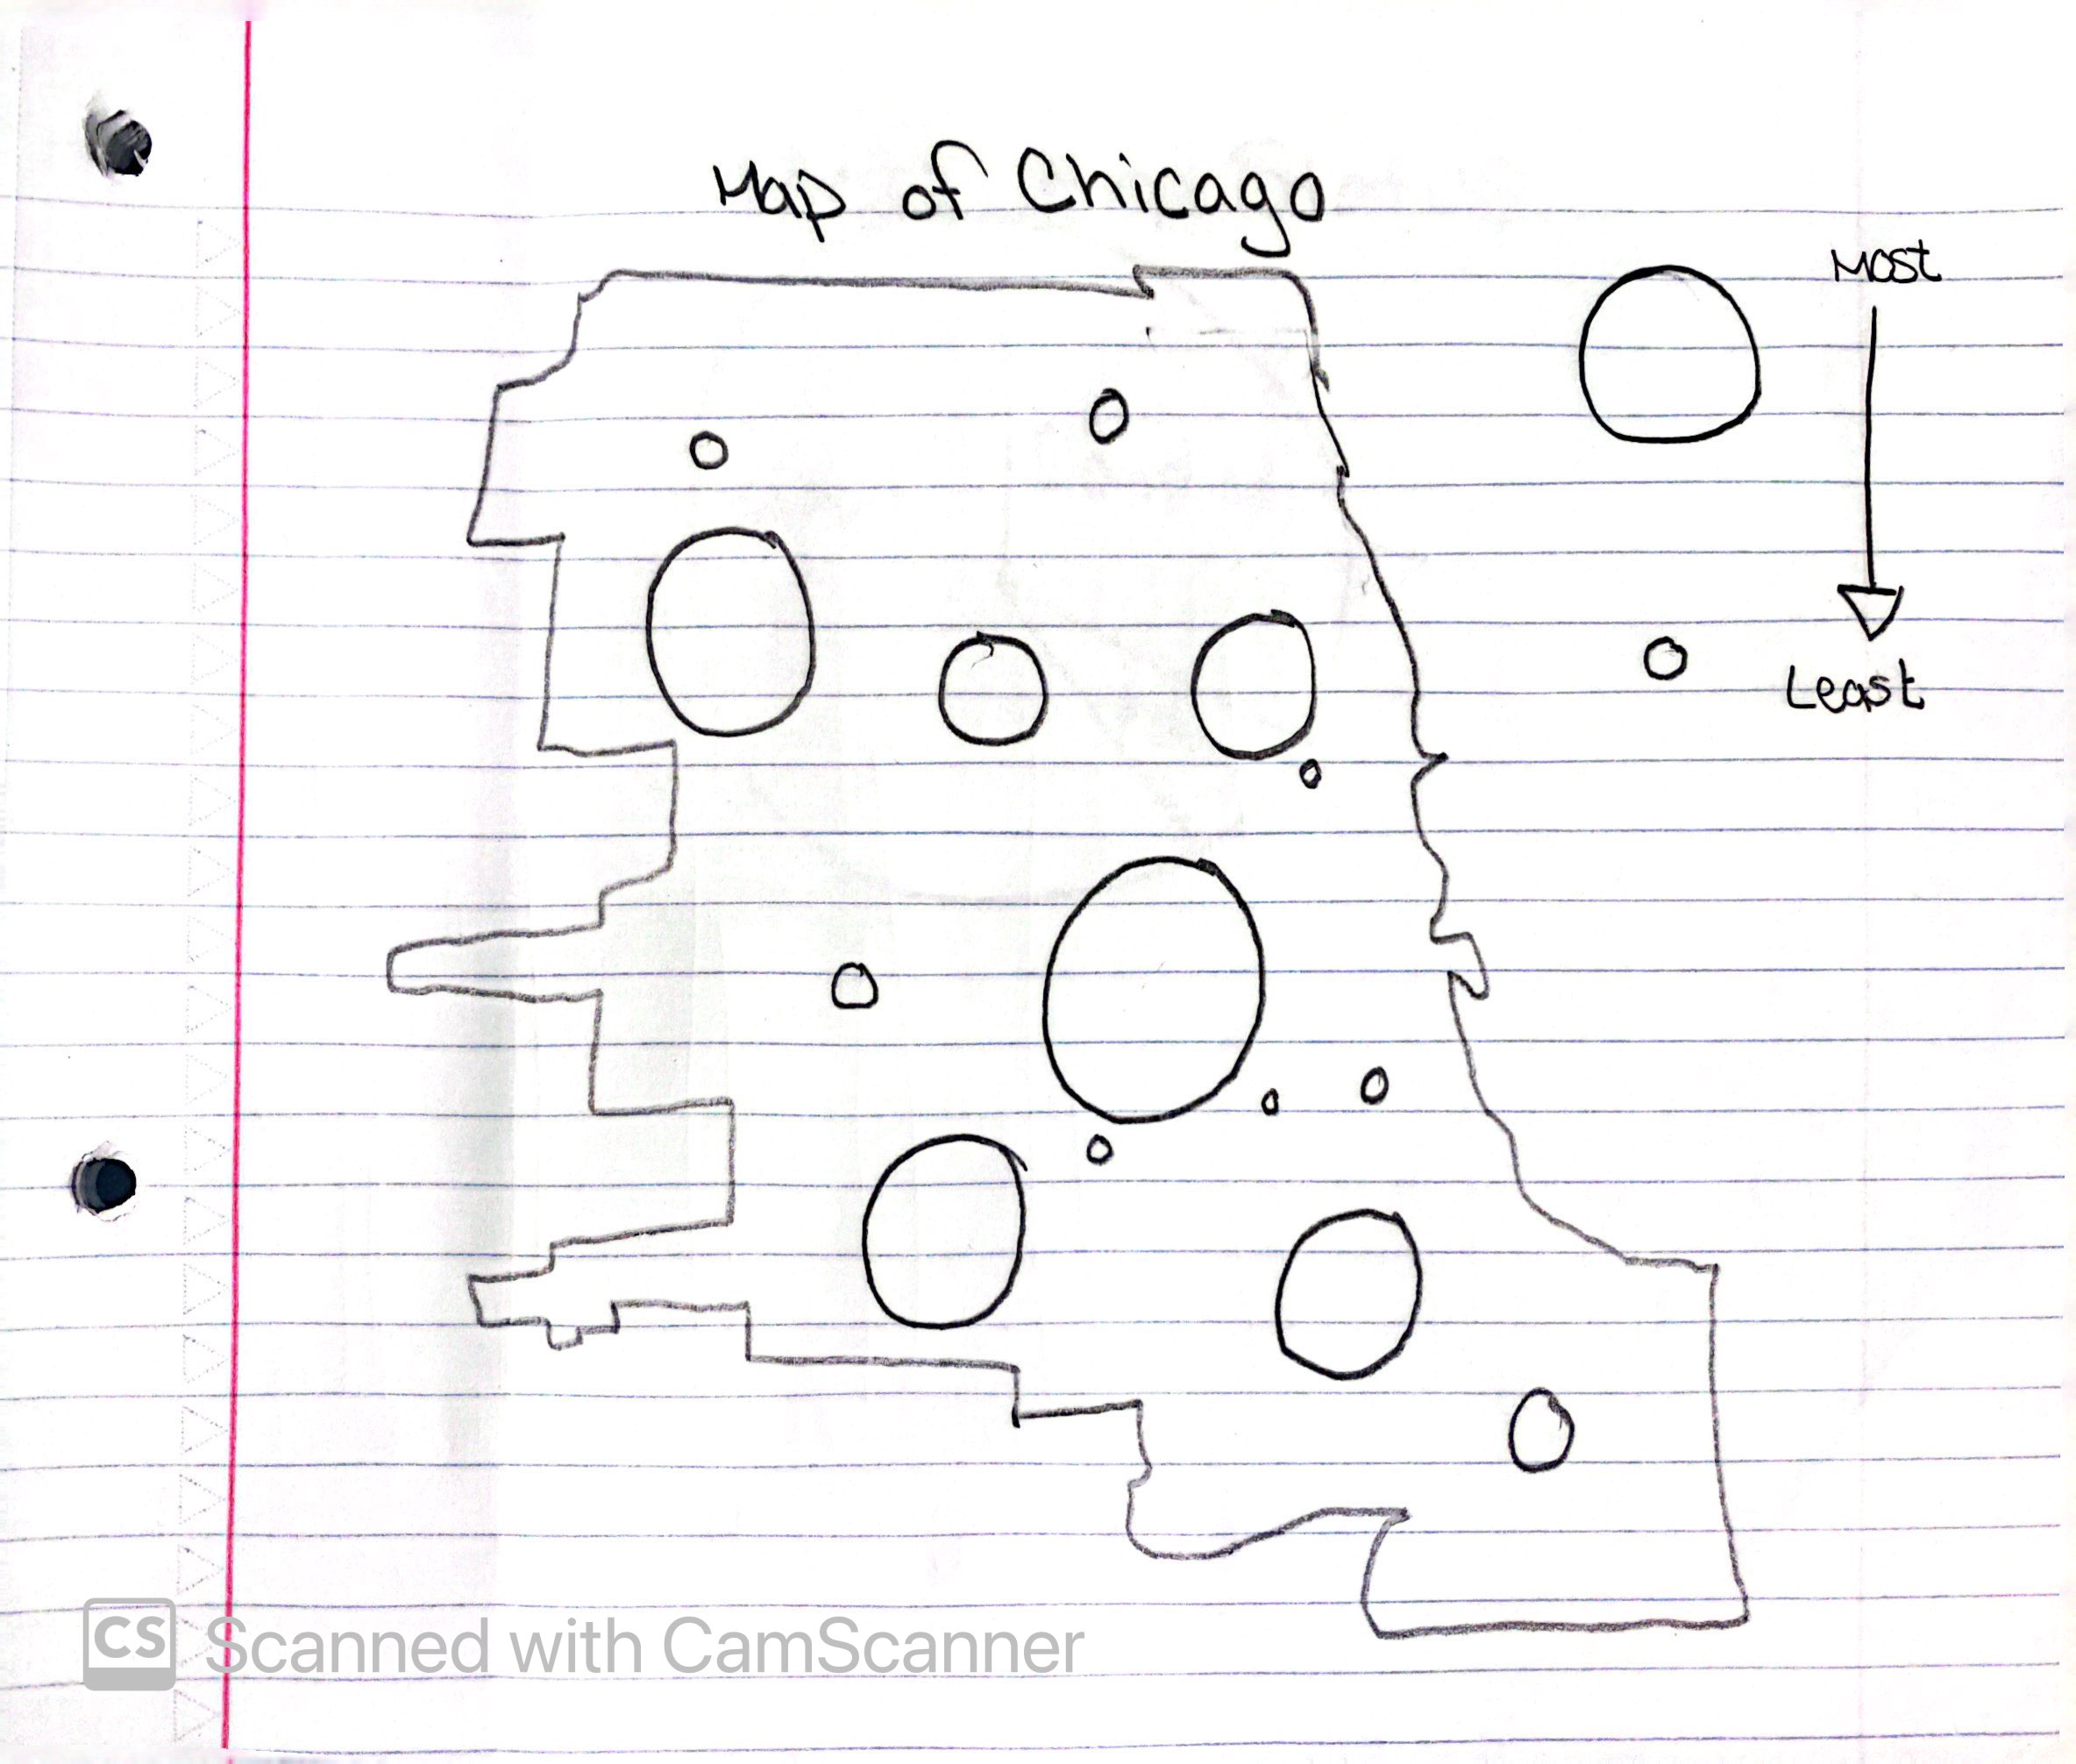 Map of Chicago
Most
Least
CS Scanned with CamScanner